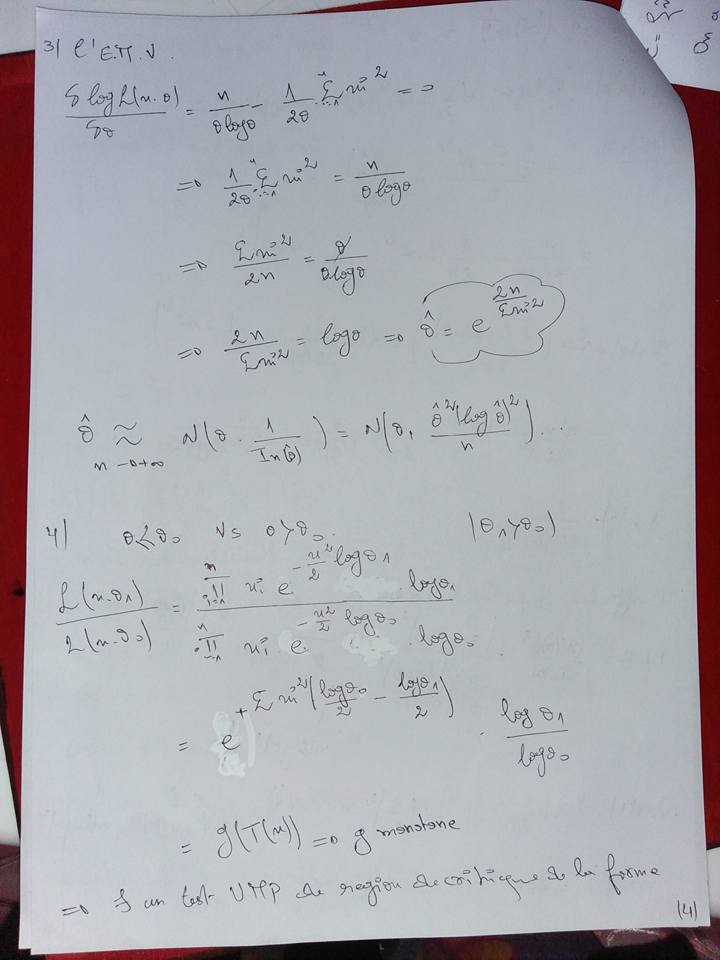 3) l'E.M.V.
δ log L(x.θ) / δθ = n / θ logθ - 1/2θ Σ_{i=1}^n xi² = 0
=> 1/2θ Σ_{i=1}^n xi² = n / θ logθ
=> Σ xi² / 2n = θ / θ logθ
=> 2n / Σ xi² = logθ => θ̂ = e^{2n / Σ xi²}
θ̂ ≈ N(θ . 1 / In(θ̂)) = N(θ, θ̂² (log θ̂)² / n) ...
n → +∞
4) θ < θ₀ Vs θ > θ₀ (θ₁ > θ₀)
L(x.θ₁) / L(x.θ₀) = Π_{i=1}^n xi e^{-x²/2 logθ₁} logθ₁ / Π_{i=1}^n xi e^{-x²/2 logθ₀} . logθ₀
= e^{+Σ xi² (logθ₀/2 - logθ₁/2)} . log θ₁ / logθ₀
= g(T(x)) => g monotone
=> ∃ un test UMP de region de critique de la forme
(4)